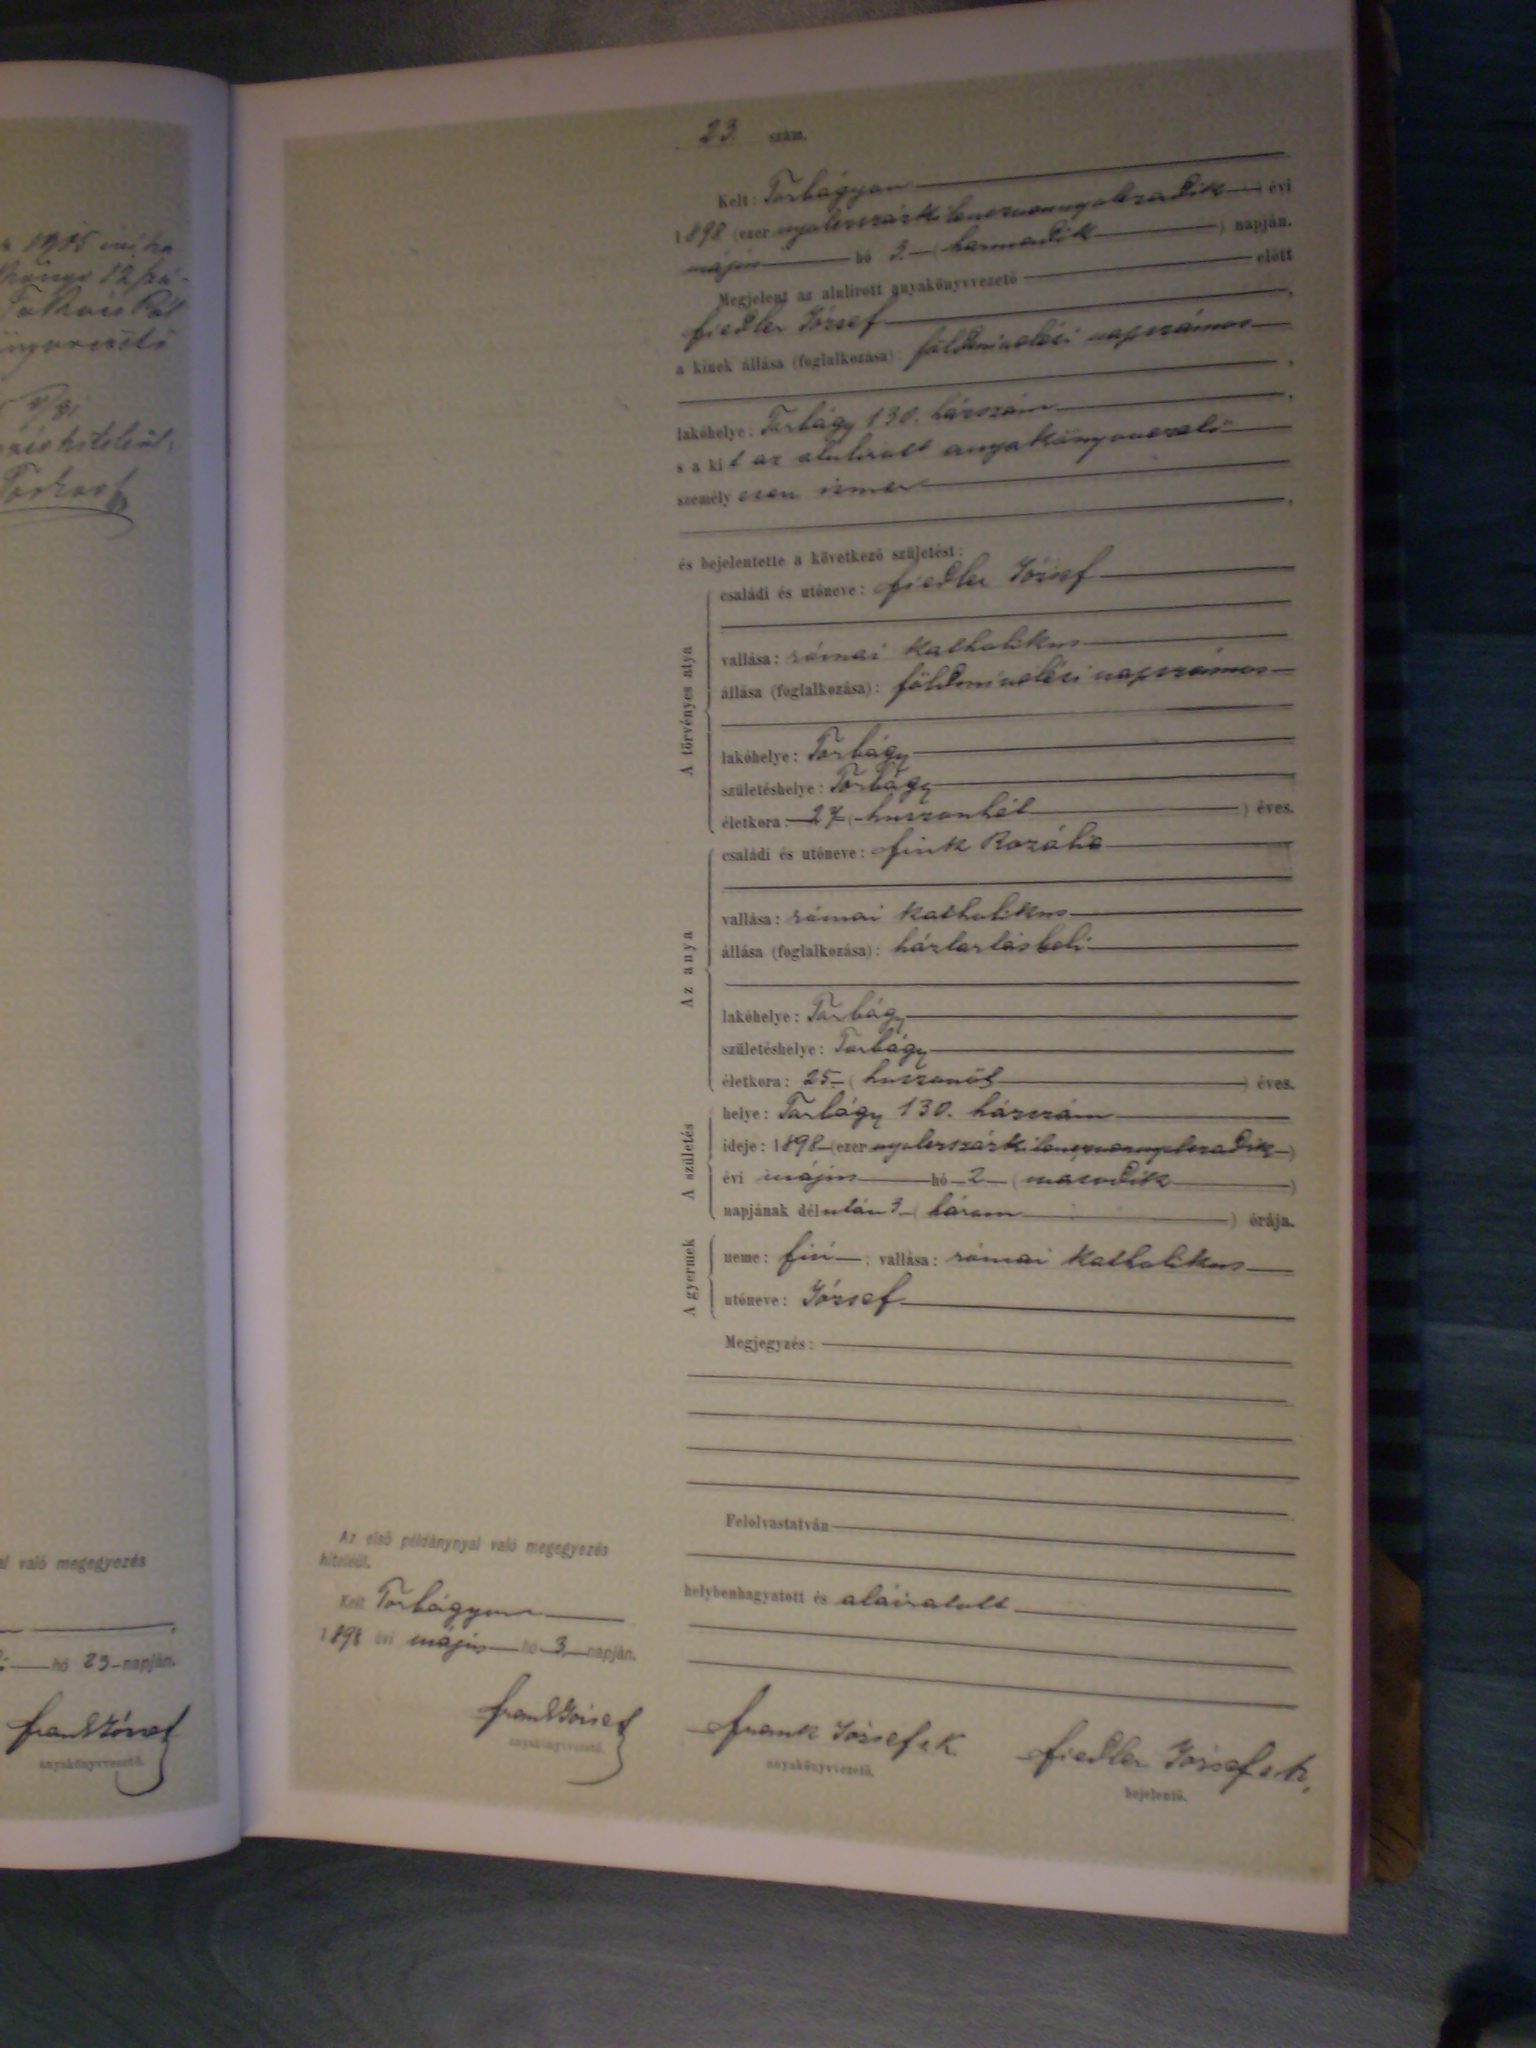 1905 évi
12
Pál
hó 23 napján.
való megegyezés
Frank József
anyakönyvvezető.
23 szám.
Kelt: Torbágyon
1898 (ezer nyolczszázkilenczvennyolczadik) évi
május hó 3. (harmadik) napján.
Megjelent az alulirott anyakönyvvezető előtt
Fiedler József,
a kinek állása (foglalkozása): földmivelési napszámos
,
lakóhelye: Torbágy 130. házszám,
s a kit az alulirott anyakönyvvezető
személyesen ismer
,
és bejelentette a következő születést:
A törvényes atya
családi és utóneve: Fiedler József
vallása: római katholikus
állása (foglalkozása): földmivelési napszámos
lakóhelye: Torbágy
születéshelye: Torbágy
életkora: 27 (huszonhét) éves.
Az anya
családi és utóneve: Fink Rozália
vallása: római katholikus
állása (foglalkozása): háztartásbeli
lakóhelye: Torbágy
születéshelye: Torbágy
életkora: 25 (huszonöt) éves.
A születés
helye: Torbágy 130. házszám
ideje: 1898 (ezer nyolczszázkilenczvennyolczadik)
évi május hó 2 (második)
napjának délután 3 (három) órája.
A gyermek
neme: fiú; vallása: római katholikus
utóneve: József
Megjegyzés:
Felolvastatván
helybenhagyatott és aláiratott
Frank József s. k.
anyakönyvvezető.
Fiedler József s. k.
bejelentő.
Az első példánynyal való megegyezés
hiteléül.
Kelt Torbágyon
1898 évi május hó 3 napján.
Frank József
anyakönyvvezető.